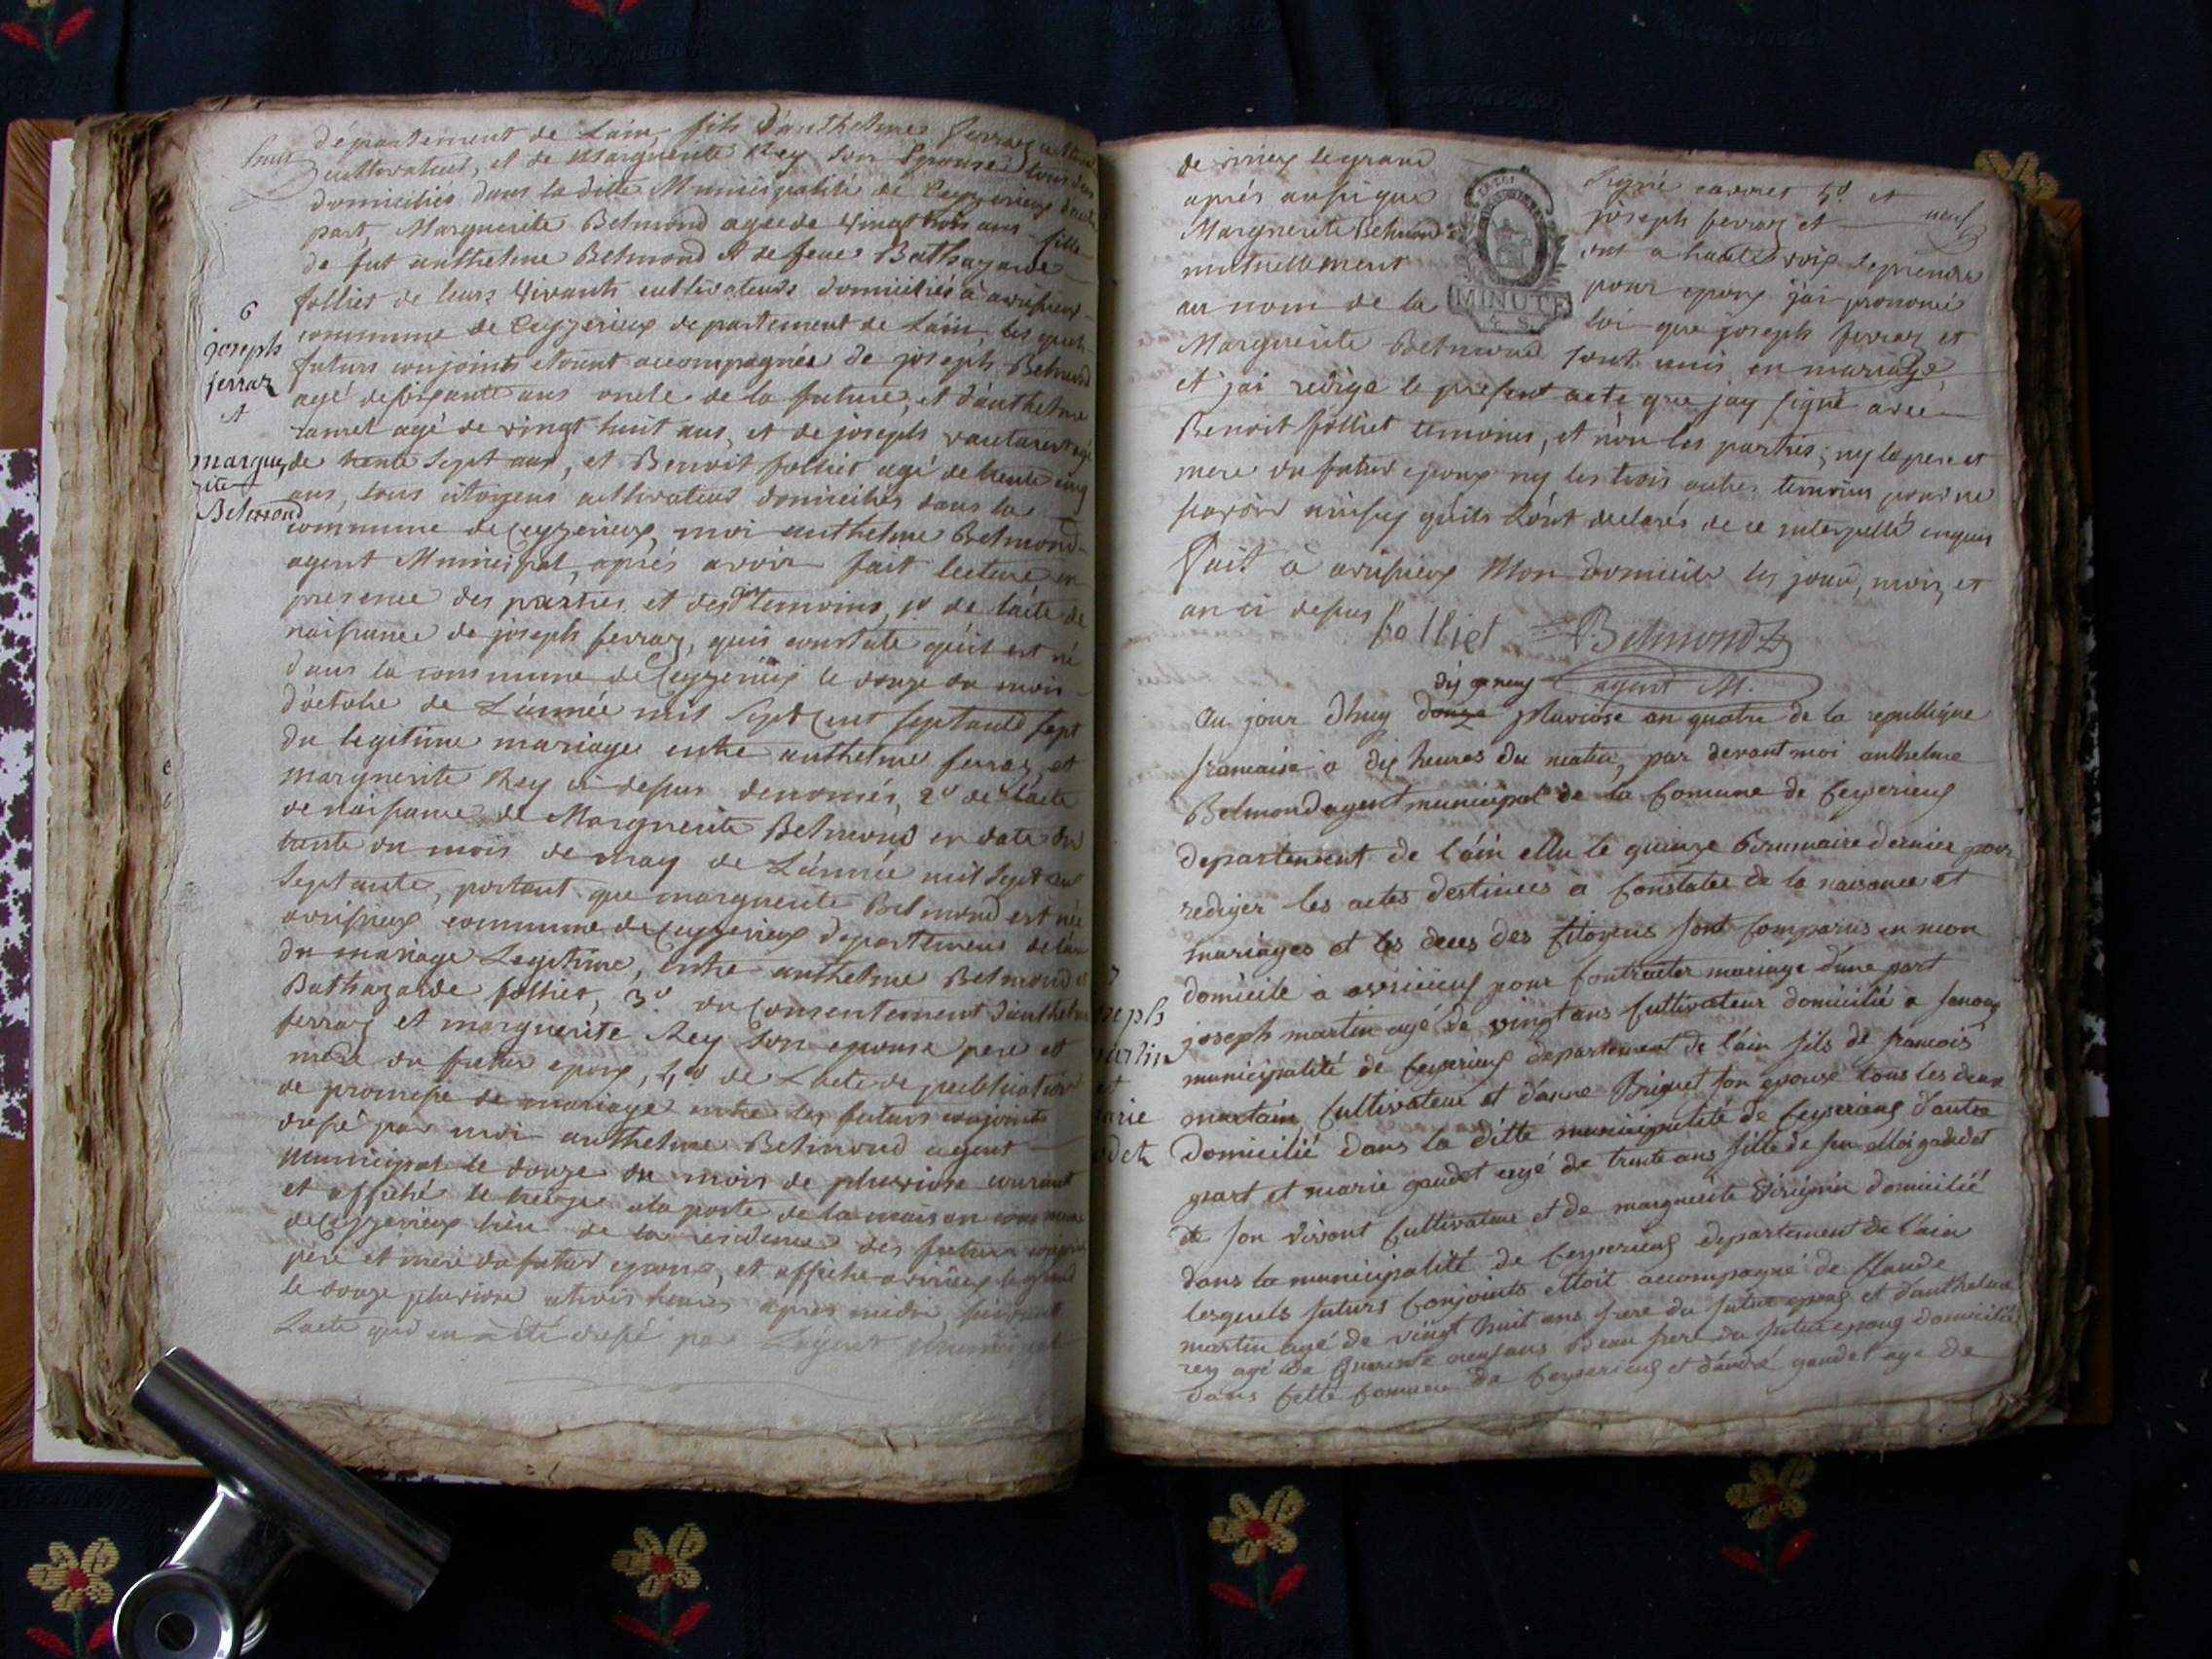 huit
département de Lain, fils d'anthelmes ferraz
cultivateur, et de Marguerite Rey son Epouse tous deux
domiciliés dans la ditte Municipalité de Ceyzerieux d'autre
part, Marguerite Belmond agée de vingt trois ans fille
de fut anthelme Belmond et de feue Bathazarde
folliet de leurs vivants cultivateurs domiciliés à avrissieux
commune de Ceyzerieux departement de Lain, les quels
futurs conjoints etoint accompagnés de joseph Belmond
agé de soixante ans oncle de la future, et d'anthelme
agé de vingt huit ans, et de joseph
de trente sept ans, et Benoit folliet agé de trente cinq
ans, tous citoyens cultivateurs domiciliés dans la
commune de Ceyzerieux, moi anthelme Belmond
agent Municipal, aprés avoir fait lecture en
presence des parties et des temoins, 1º de l'acte de
naissance de joseph ferraz, quis constate qu'il est né
dans la commune de Ceyzerieux le douze du mois
d'octobre de L'année mil sept cent septante sept
du legitime mariage entre anthelme ferraz, et
marguerite Rey ci dessus denomés, 2º de l'acte
de naissance de Marguerite Belmond en date du
trente du mois de may de L'année mil sept cent
septante, portant que marguerite Belmond est née
avrissieux commune de Ceyzerieux departement de lain
du mariage Legitime, entre anthelme Belmond et
Bathazarde folliet, 3º du Consentement d'anthelme
ferraz et marguerite Rey son epouse pere et
mere du futur epoux, 4º de L'acte de publication
de promesse de mariage entre les futurs conjoints
dressé par moi anthelme Belmond agent
municipal le douze du mois de pluviose courant
et affiché le treize a la porte de la maison commune
de Ceyzerieux lieu de la residence des futurs conjoints
pere et mere du futur epoux, et affiché a virieux le grand
le douze pluviose a trois heures apres midi, suivant
Lacte qui en a été dressé par Lagent municipal
6
joseph
ferraz
et
marguerite
Belmond
de virieux le grand
aprés aussi que
Marguerite Belmond
mutuellement
au nom de la
MINUTE
4 S.
signé carrret 5º. et
neuf
joseph ferraz et
ont a haute voix se prendre
pour epoux j'ai prononcé
loi que joseph ferraz et
Marguerite Belmond sont unis en mariage,
et j'ai redigé le present acte que jay signé avec
Benoit folliet temoins, et non les parties, ny le pere et
mere du futur epoux ny les trois autres temoins pour ne
savoir ainsy qu'ils l'ont declarés de ce interpellé enquis
Fait à avrissieux Mon domicile les jour, mois, et
an ci dessus
folliet Belmond
agent M.
dix et neuf
Au jour d'huy douze pluviose an quatre de la republique
francaise a dix heures du matin, par devant moi anthelme
Belmond agent municipal de la Comune de Ceyserieux
departement de l'ain ellu le quinze Brumaire dernier pour
rediger les actes destinees a Constater de la naisance et
mariages et les deces des Citoyens sont Comparus en mon
domicile a avrissieux pour Contracter mariage d'une part
joseph martin agé de vingt ans Cultivateur domicilié a
municipalité de Ceyserieux departement de l'ain fils de francois
martain, Cultivateur et d'anne Briguet son epouse tous les deux
Domicilié dans la ditte municipalité de Ceyserieux d'autre
part et marie gaudet agé de trente ans fille de feu gaudet
de son vivant Cultivateur et de marguerite domicilié
dans la municipalité de Ceyserieux departement de l'ain
lesquels futurs Conjoints etoit accompagné de Claude
martin agé de vingt huit ans frere du futur epoux et d'anthelme
rey agé de quarente neuf ans Beau frere du futur epoux domicilié
dans cette Comune de Ceyserieux et d'andré gaudet age de
7
seph
artin
et
arie
udet